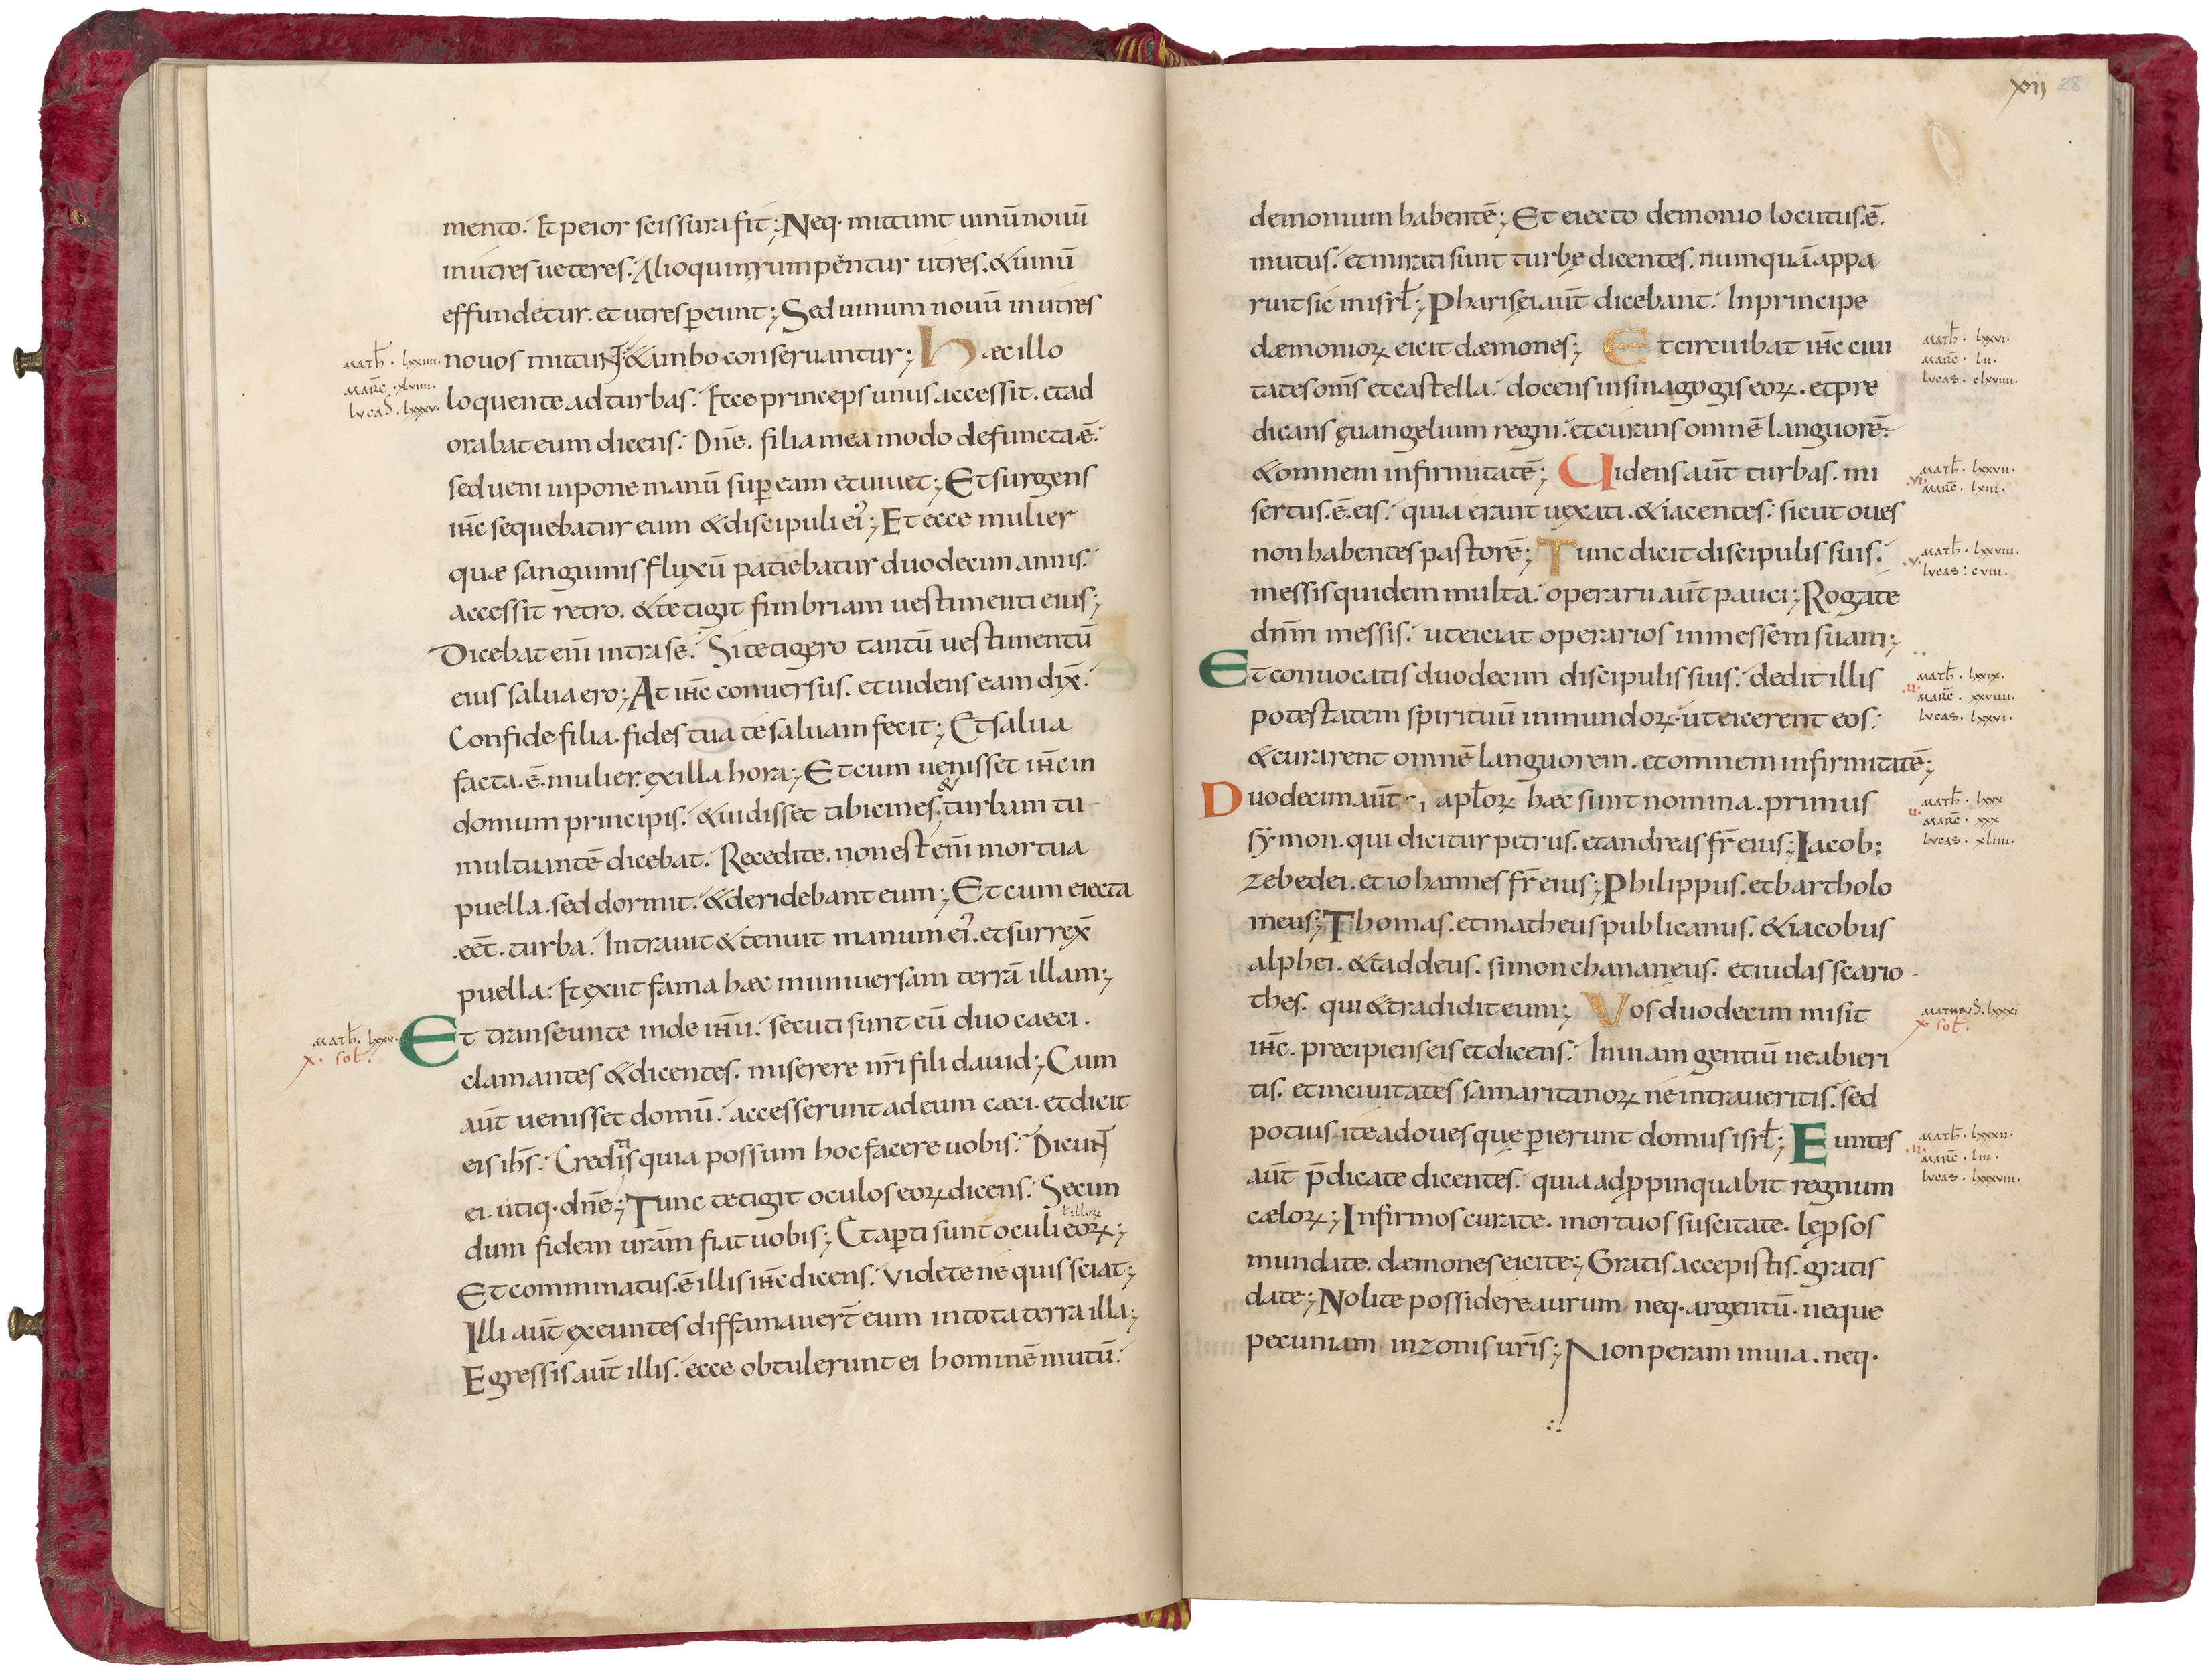 mento. Et peior scissura fit; Neq· mittunt uinū nouū
in utres ueteres. Alioquin rumpentur utres. & uinū
effundetur. et utres ꝑeunt; Sed uinum nouū in utres
math̄. lxxiiii.
marc̄. xluiiii.
lucas. lxxxv.
nouos mittunt. & ambo conseruantur; Haec illo
loquente ad turbas. Ecce princeps unus accessit. et ad
orabat eum dicens. Dn̄e. filia mea modo defuncta.ē.
sed ueni inpone manū suꝑ eam et uiuet; Et surgens
ih̄c sequebatur eum & discipuli ei'; Et ecce mulier
quae sanguinis fluxū patiebatur duodecim annis.
accessit retro. & tetigit fimbriam uestimenti eius;
Dicebat eni̅ intra se. Si tetigero tantū uestimentū
eius salua ero; At ih̄c conuersus. et uidens eam dix̄.
Confide filia. fides tua te saluam fecit; Et salua
facta.ē. mulier. ex illa hora; Et cum uenisset ih̄c in
domum principis. & uidisset tibicines. & turbam tu-
multuantē dicebat. Recedite. non est eni̅ mortua
puella. sed dormit. & deridebant eum; Et cum eiecta
.eēt. turba. Intrauit & tenuit manum ei'. et surrex̄
puella. Et exiit fama haec in uniuersam terrā illam;
math̄. lxxv.
x. sol̄.
Et transeunte inde ih̄u. secuti sunt eū duo caeci.
clamantes & dicentes. miserere nr̄i fili dauid; Cum
aūt uenisset domū. accesserunt ad eum cæci. et dicit
eis ih̄s. Creditis quia possum hoc facere uobis. Dicunt
ei. utiq· dn̄e; Tunc tetigit oculos eoꝝ dicens. Secun
ł illoꝝ
dum fidem ur̄am fiat uobis; Et aꝑti sunt oculi eoꝝ;
Et comminatus.ē illis ih̄c dicens. Videte ne quis sciat;
Illi aūt exeuntes diffamauer̄t eum in tota terra illa;
Egressis aūt illis. ecce obtulerunt ei hominē mutū.
xij 28
demonium habentē; Et eiecto demonio locutus.ē.
mutus. et mirati sunt turbę dicentes. numquā appa
ruit sic in isrł; Phariseӏ aūt dicebant. In principe
dæmonioꝝ eicit dæmones; Et circuibat ih̄c ciui
math̄. lxxvi.
marc̄. lii.
lucas. clxviiii.
tates om̄s et castella. docens in sinagogis eoꝝ. et pre
dicans euangelium regni. et curans omnē languorē.
& omnem infirmitatē; Uidens aūt turbas. mi
.vi. math̄. lxxvii.
marc̄. lxiii.
sertus.ē. eis. quia erant uexati. & iacentes. sicut oues
non habentes pastorē; Tunc dicit discipulis suis.
.v. math̄. lxxviii.
lucas. cviii.
messis quidem multa. operarii aūt pauci; Rogate
dn̄m messis. ut eiciat operarios in messem suam;
Et conuocatis duodecim discipulis suis. dedit illis
.ii. math̄. lxxix.
marc̄. xxviiii.
lucas. lxxvi.
potestatem spirituū inmundoꝝ. ut eicerent eos.
& curarent omnē languorem. et omnem infirmitatē;
Duodecim aūt apłoꝝ haec sunt nomina. primus
ii. math̄. lxxx
marc̄. xxx
lucas. xliiii.
sẏmon. qui dicitur petrus. et andreas fr̄ eius; Iacob;
zebedei. et iohannes fr̄ eius; Philippus. et bartholo
meus; Thomas. et matheus publicanus. & iacobus
alphei. & taddeus. simon chananeus. et iudas scario-
thes. qui & tradidit eum; Vos duodecim misit
lxxxi
x sol̄.
ih̄c. precipiens eis et dicens. In uiam gentiū ne abieri
tis. et in ciuitates samaritanoꝝ ne intraueritis. sed
potius ite ad oues que ꝑierunt domus isrł; Euntes
.ii. math̄. lxxxii.
marc̄. liii.
lucas. lxxxviii.
aūt p̄dicate dicentes. quia adꝓpinquabit regnum
cæloꝝ; Infirmos curate. mortuos suscitate. leꝓsos
mundate. dæmones eicite; Gratis accepistis. gratis
date; Nolite possidere aurum neq· argentū. neque
pecuniam in zonis ur̄is; Non peram in uia. neq·